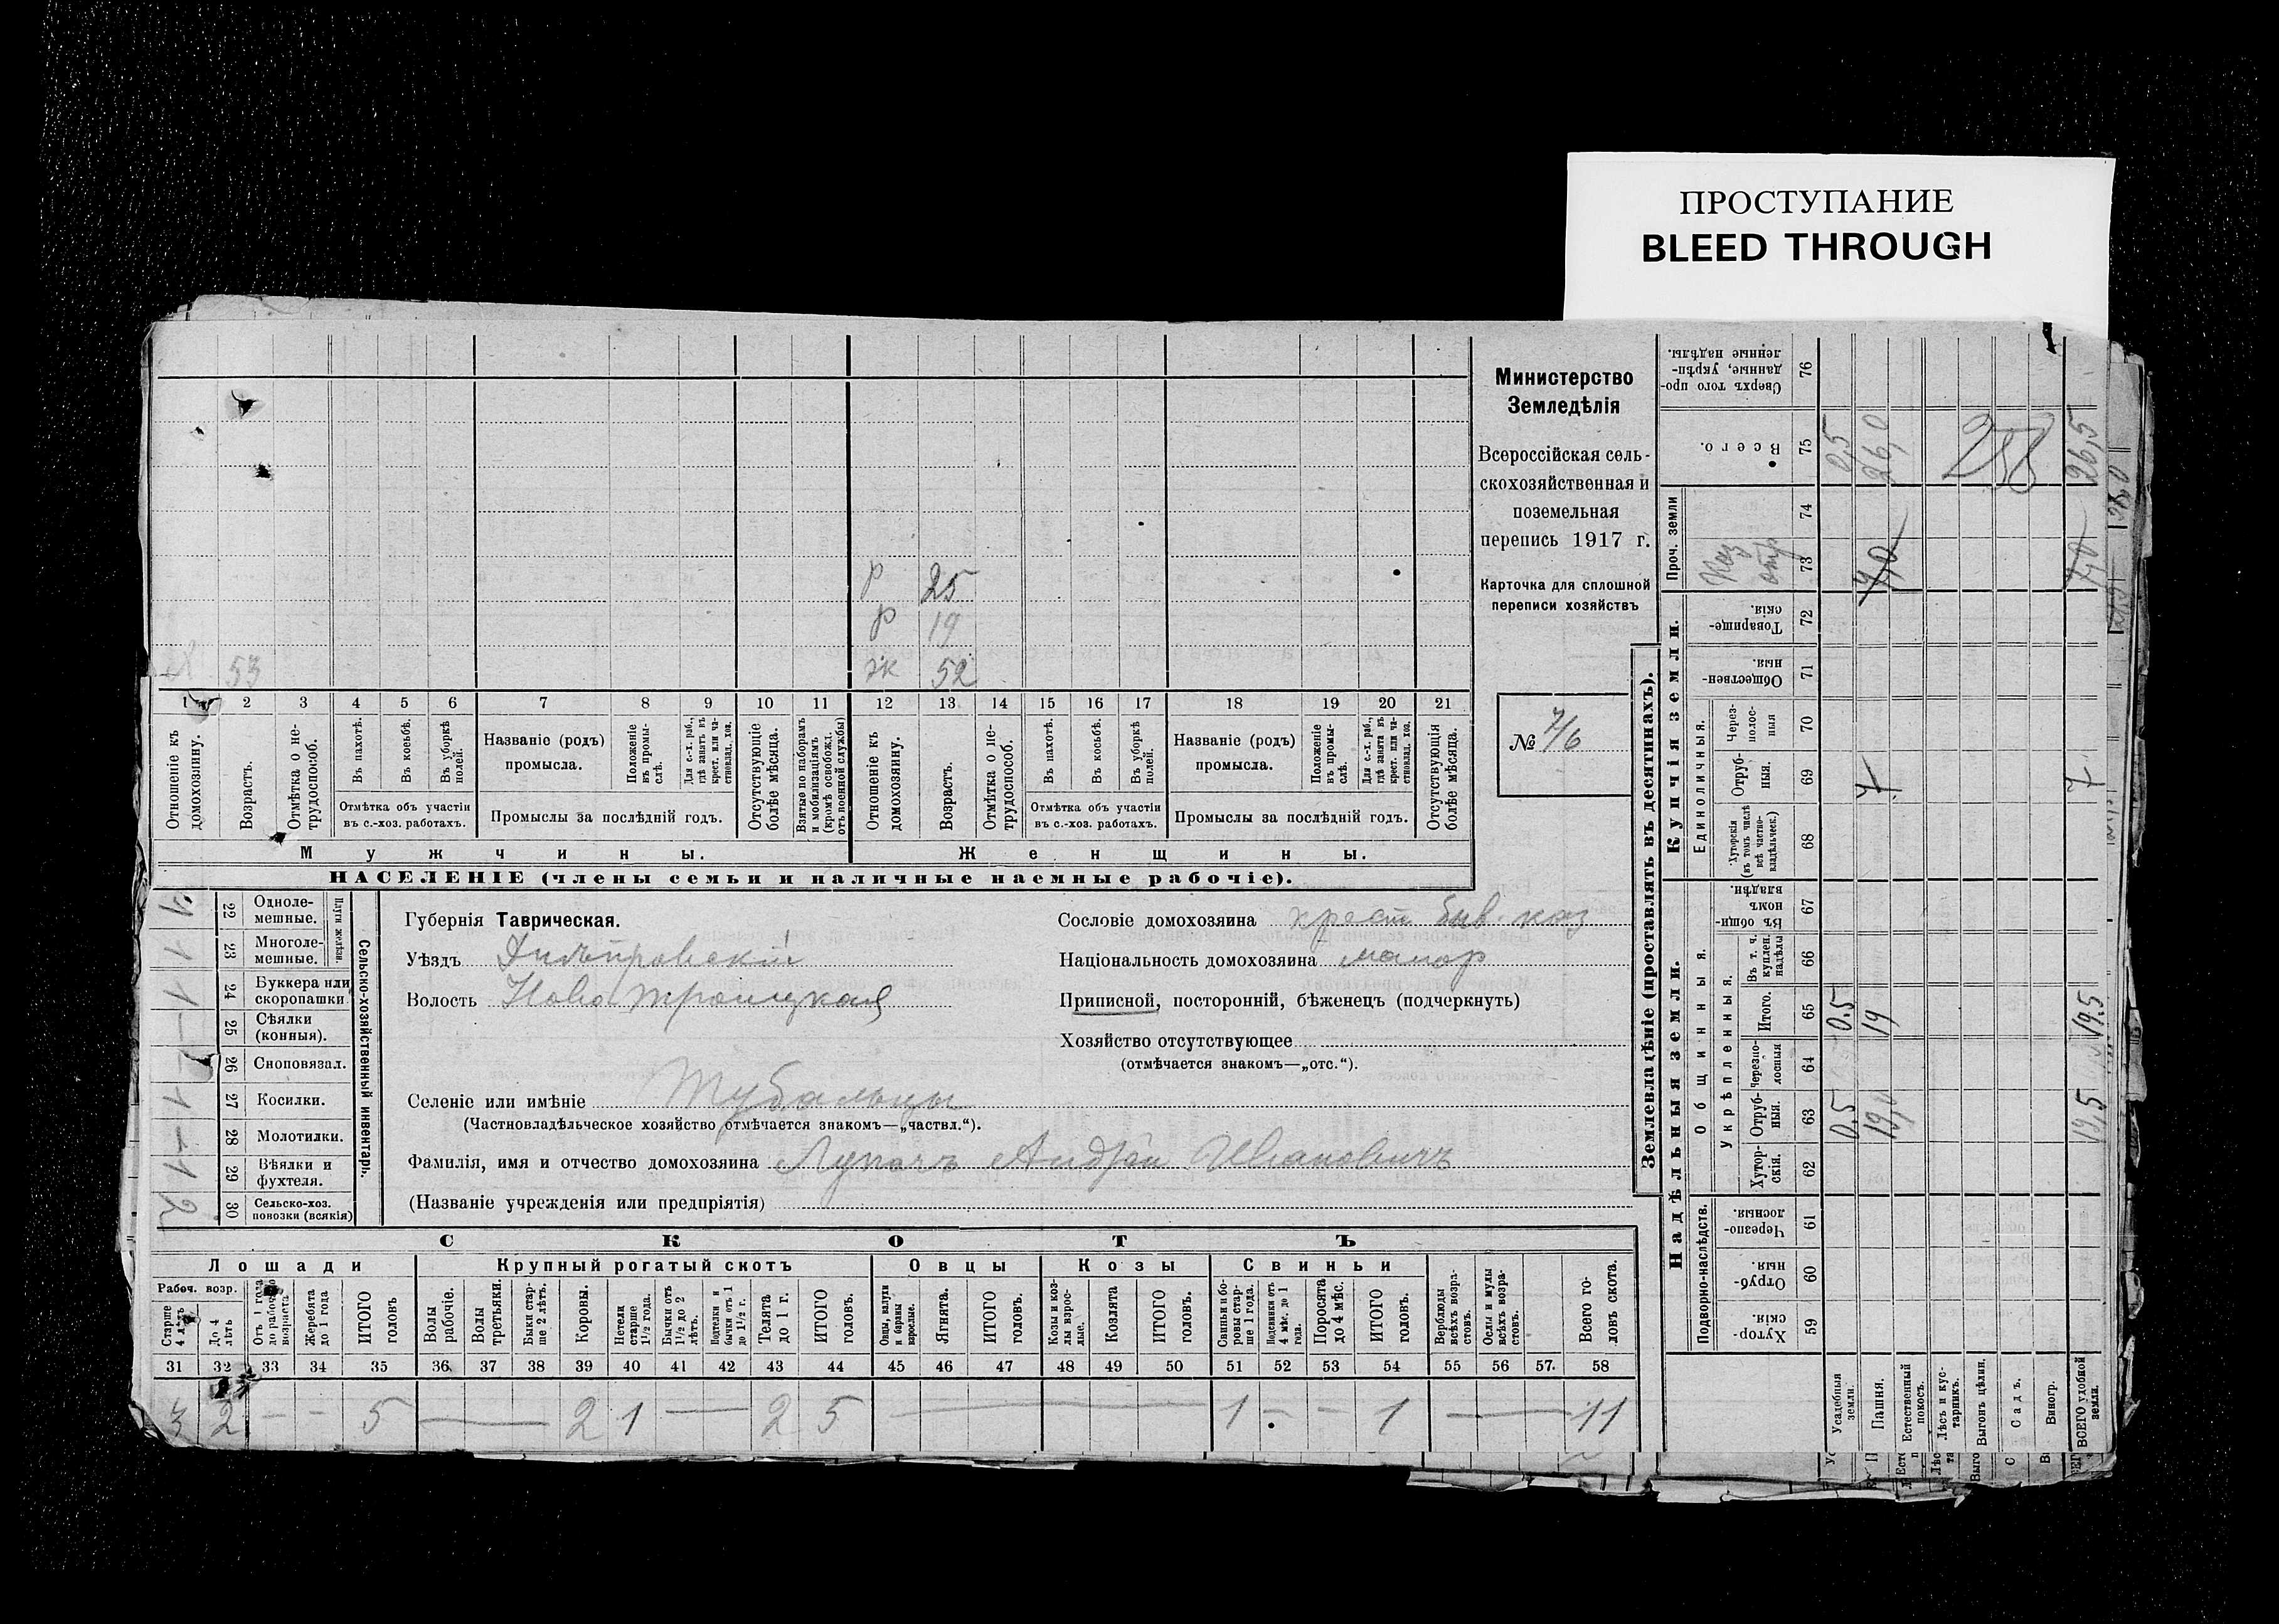 ПРОСТУПАНИЕ
BLEED THROUGH
Министерство
Земледѣлія
Всероссійская сель-
скохозяйственная и
поземельная
перепись 1917 г.
Карточка для сплошной
переписи хозяйствъ
№ 7/6
Р 25
Р 19
53 ж 52
1 2 3 4 5 6 7 8 9 10 11 12 13 14 15 16 17 18 19 20 21
Отношеніе къ домохозяину.
Возрастъ.
Отмѣтка о не-трудоспособ.
Въ пахотѣ.
Въ косьбѣ.
Въ уборкѣ полей.
Отмѣтка объ участіи
въ с.-хоз. работахъ.
Названіе (родъ)
промысла.
Положеніе въ промы-слѣ.
Для с.-х. раб., гдѣ занятъ въ крест. или ча-стновлад. хоз.
Промыслы за послѣдній годъ.
Отсутствующіе болѣе мѣсяца.
Взятые по наборамъ и мобилизаціямъ (кромѣ освобожд. отъ военной службы)
Отношеніе къ домохозяину.
Возрастъ.
Отмѣтка о не-трудоспособ.
Въ пахотѣ.
Въ косьбѣ.
Въ уборкѣ полей.
Отмѣтка объ участіи
въ с.-хоз. работахъ.
Названіе (родъ)
промысла.
Положеніе въ промы-слѣ.
Для с.-х. раб., гдѣ занята въ крест. или ча-стновлад. хоз.
Промыслы за послѣдній годъ.
Отсутствующія болѣе мѣсяца.
Мужчины. Женщины.
НАСЕЛЕНІЕ (члены семьи и наличные наемные рабочіе).
Сельско-хозяйственный инвентарь.
Плуги желѣзн.
22 Одноле-мешные.
1 23 Многоле-мешные.
1 24 Буккера или скоропашки
25 Сѣялки (конныя).
26 Сноповязал.
1 27 Косилки.
28 Молотилки.
1 29 Вѣялки и фухтеля.
2 30 Сельско-хоз. повозки (всякія)
Губернія Таврическая.
Уѣздъ Днѣпровскій
Волость Ново Троицкая
Селеніе или имѣніе
(Частновладѣльческое хозяйство отмѣчается знакомъ—„частвл.“).
Фамилія, имя и отчество домохозяина Андрей Ивановичъ
(Названіе учрежденія или предпріятія)
Сословіе домохозяина крест быв. каз
Національность домохозяина малор
Приписной, посторонній, бѣженецъ (подчеркнуть)
Хозяйство отсутствующее
(отмѣчается знакомъ—„отс.“).
СКОТЪ
Лошади Крупный рогатый скотъ Овцы Козы Свиньи
Рабоч. возр.
Старше 4 лѣтъ
До 4 лѣтъ
Отъ 1 года до рабочаго возраста
Жеребята до 1 года
ИТОГО головъ
Волы рабочіе.
Волы третьяки.
Быки стар-ше 2 лѣтъ.
Коровы.
Нетели старше 1½ года.
Бычки отъ 1½ до 2 лѣтъ.
Подтелки и бычки отъ 1 до 1½ г.
Телята до 1 г.
ИТОГО головъ.
Овцы, валухи и бараны взрослые.
Ягнята.
ИТОГО головъ.
Козы и коз-лы взрос-лые.
Козлята
ИТОГО головъ.
Свиньи и бо-ровы стар-ше 1 года.
Подсвинки отъ 4 мѣс. до 1 года.
Поросята до 4 мѣс.
ИТОГО головъ.
Верблюды всѣхъ возра-стовъ.
Ослы и мулы всѣхъ возра-стовъ.
Всего го-ловъ скота.
31 32 33 34 35 36 37 38 39 40 41 42 43 44 45 46 47 48 49 50 51 52 53 54 55 56 57. 58
3 2 — — 5 — 2 1 — 2 5 — 1 — — 1 — 11
Землевладѣніе (проставлять въ десятинахъ).
Надѣльныя земли. Купчія земли. Проч. земли
Подворно-наслѣдств.
Общинныя.
Укрѣпленныя.
Единоличныя.
Хутор-скія. 59
Отруб-ныя. 60
Черезпо-лосныя. 61
Хутор-скія. 62
Отруб-ныя. 63
Черезпо-лосныя 64
Итого. 65
Въ т. ч. куплен. надѣлы 66
Въ общин-номъ владѣн. 67
Хуторскія (въ томъ числѣ всѣ частно-владѣльческ.) 68
Отруб-ныя. 69
Через-полос-ныя 70
Обществен-ныя. 71
Товарище-скія. 72
73
74
Всего. 75
Сверхъ того про-данные, укрѣп-ленные надѣлы. 76
Усадебныя земли. 0.5 0.5 0,5
Пашня. 19,0 19 7 7,0 26,0
Естественный покосъ.
Лѣсъ и кус-тарникъ.
Выгонъ цѣлин.
Садъ.
Виногр.
ВСЕГО удобной земли. 19,5 19.5 7 7,0 26,5